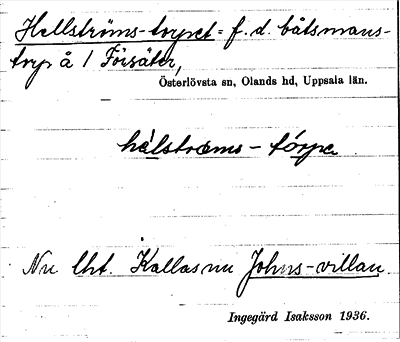 Hellströms-torpet = f. d. båtsmans-
torp å 1 Försäter,
Österlövsta sn, Olands hd, Uppsala län.
hälstroms - tórpe
Nu lht. Kallas nu Johns-villan.
Ingegärd Isaksson 1936.